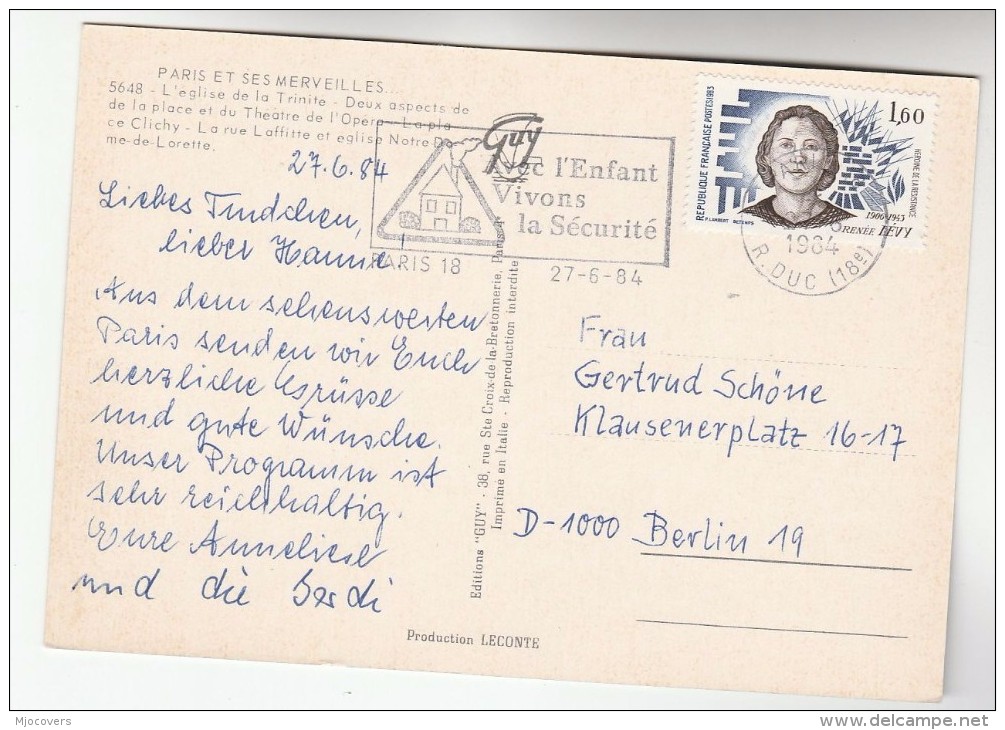 PARIS ET SES MERVEILLES...
5648 - L'eglise de la Trinite - Deux aspects de
de la place et du Theatre de l'Opera - La pla
ce Clichy - La rue Laffitte et eglise Notre Da
me-de-Lorette.
27.6.84
Liebes Trudchen,
lieber Hanne!
Aus dem sehenswerten
Paris senden wir Euch
herzliche Grüsse
und gute Wünsche.
Unser Programm ist
sehr reichhaltig.
Eure Anneliese
und die Gerdi
Guy
Avec l'Enfant
Vivons
la Sécurité
PARIS 18
27-6-84
Editions "GUY" - 38, rue Ste Croix-de-la-Bretonnerie, Paris 4e
Imprimé en Italie - Reproduction interdite
Production LECONTE
REPUBLIQUE FRANÇAISE POSTES 1983
1,60
HEROINE DE LA RESISTANCE
1906-1943
RENÉE LEVY
1984
R. DUC (18e)
Frau
Gertrud Schöne
Klausenerplatz 16-17
D-1000 Berlin 19
Mjocovers
delcampe.net